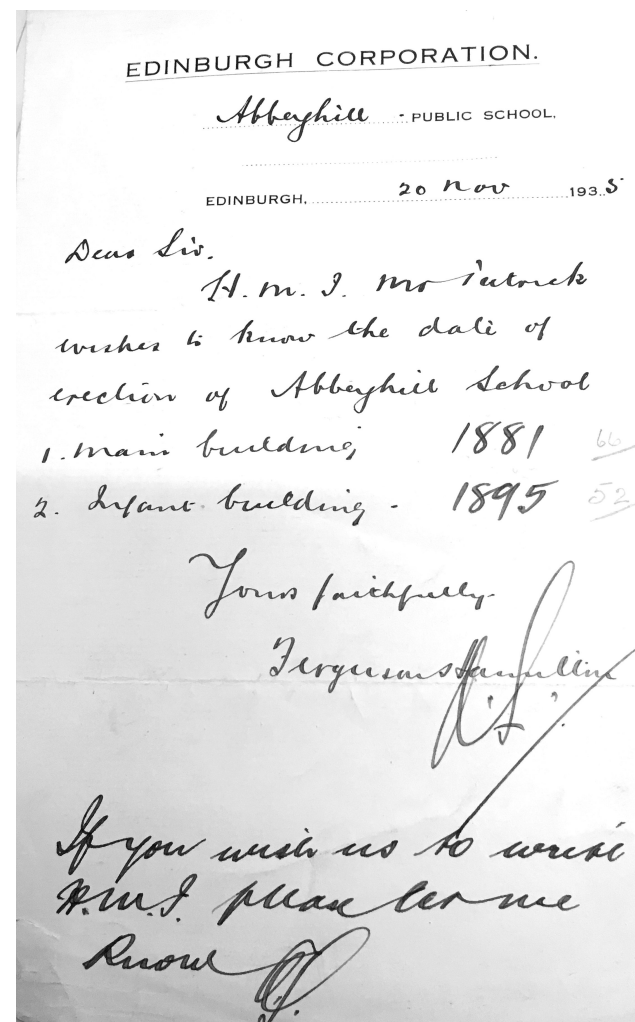 EDINBURGH CORPORATION.
Abbeyhill - PUBLIC SCHOOL,
EDINBURGH, 20 Nov 1935
Dear Sir.
H. M. I. Mr Patrick
wishes to know the date of
erection of Abbeyhill School
1. Main building 1881 66
2. Infant building - 1895 52
Yours faithfully
Ferguson Hamilton
If you wish us to write
H.M.I. please let me
know